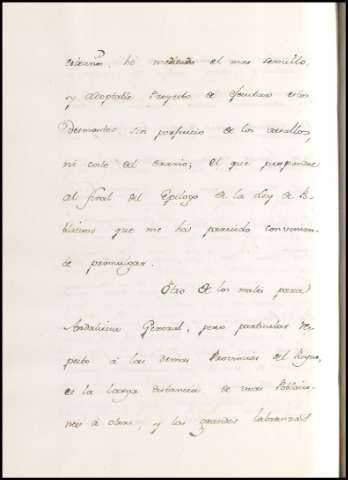 ha meditado el mas sencillo,
y adoptable Proyecto de efectuar estos
Desmontes sin perjuicio de los vasallos,
ni costo del erario; el que propondré
al final del Epílogo de la Ley de Po-
blacion que me ha parecido convenien-
te promulgar.
Otro de los males para
Andalucia General, pero particular res-
pecto à las demas Provincias del Reyno,
es la larga distancia de unas Poblacio-
nes à otras, y las grandes labranzas